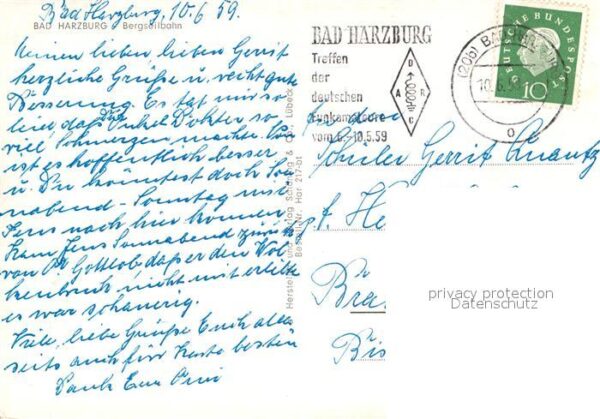 Bad Harzburg, 10.6.59.
BAD HARZBURG Bergseilbahn
Meinen lieben, lieben Gerrit
herzliche Grüße u. recht gute
Besserung. Es tut mir so
leid, daß Dir Onkel Doktor so
viel Schmerzen machte. Nun
ist es hoffentlich besser
u. Du könntest doch Son
nabend - Sonntag mit
Jens nach hier kommen
Kam Jens Sonnabend zurück
von Gottlob, daß er den Wol
kenbruch nicht mit erlebte
es war schaurig.
Viele, liebe Grüße Euch aller
seits auch für Karte besten
Dank Eure Omi
Herstellung und Verlag Schöning & Co., Lübeck
Bestell-Nr. Har 217-bt
BAD HARZBURG
Treffen
der
deutschen
Funkamateure
vom 8.-10.5.59
D
A R
C
(20b) BAD HARZBURG
10.6.59
o
DEUTSCHE BUNDESPOST
10
Schüler Gerrit
pt. He
Bra
Bis
privacy protection
Datenschutz